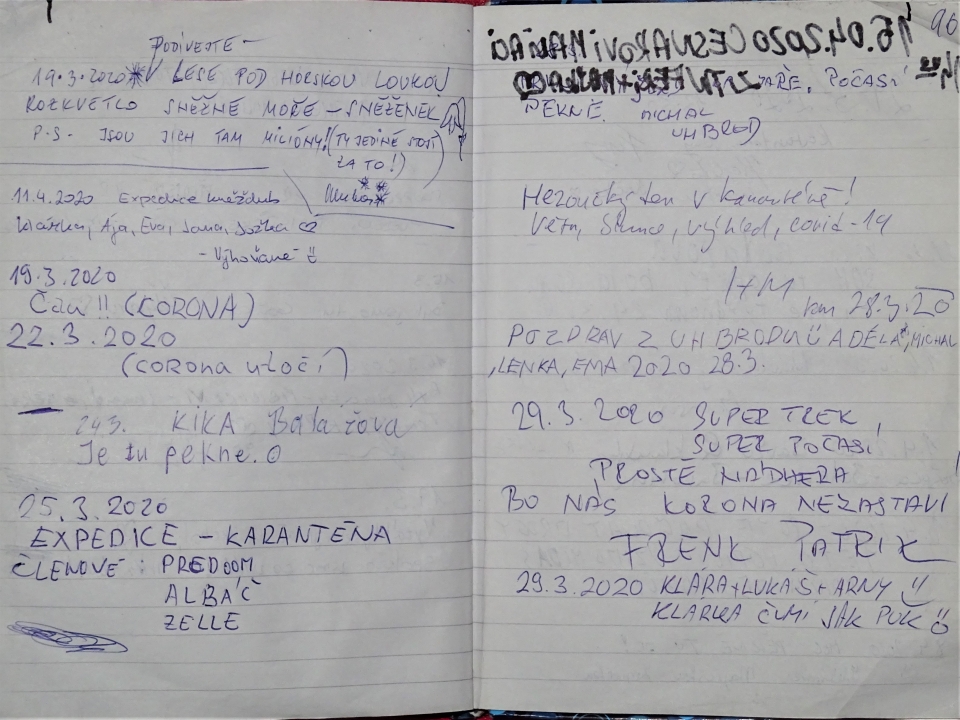 PODÍVEJTE –
19.3.2020 V LESE POD HORSKOU LOUKOU
ROZKVETLO SNĚŽNÉ MOŘE – SNĚŽENEK
P.S. JSOU JICH TAM MILIÓNY! (TY JEDINÉ STOJÍ
ZA TO!)
11.4.2020 Expedice
Klárka, Ája, Eva, Jana, Jožka
19.3.2020
Čau!! (CORONA)
22.3.2020
(corona útočí)
24.3. KIKA
Je tu pekne.
25.3.2020
EXPEDICE – KARANTÉNA
ČLENOVÉ: PREDOOM
ALBAČ
ZELLE
90
15.04.2020
POČASÍ
PĚKNÉ. MICHAL
UH BROD
Hezoučký den v karanténě!
Vítr, Slunce, výhled, covid-19
I+M
28.3.20
POZDRAV Z UH BRODU ADÉLA, MICHAL
, LENKA, EMA 2020 28.3.
29.3.2020 SUPER TREK,
SUPER POČASÍ
PROSTĚ NÁDHERA
BO NÁS KORONA NEZASTAVÍ
FRENK PATRIK
29.3.2020 KLÁRA+LUKÁŠ+ARNY
KLARKA ČUMÍ JAK PUK